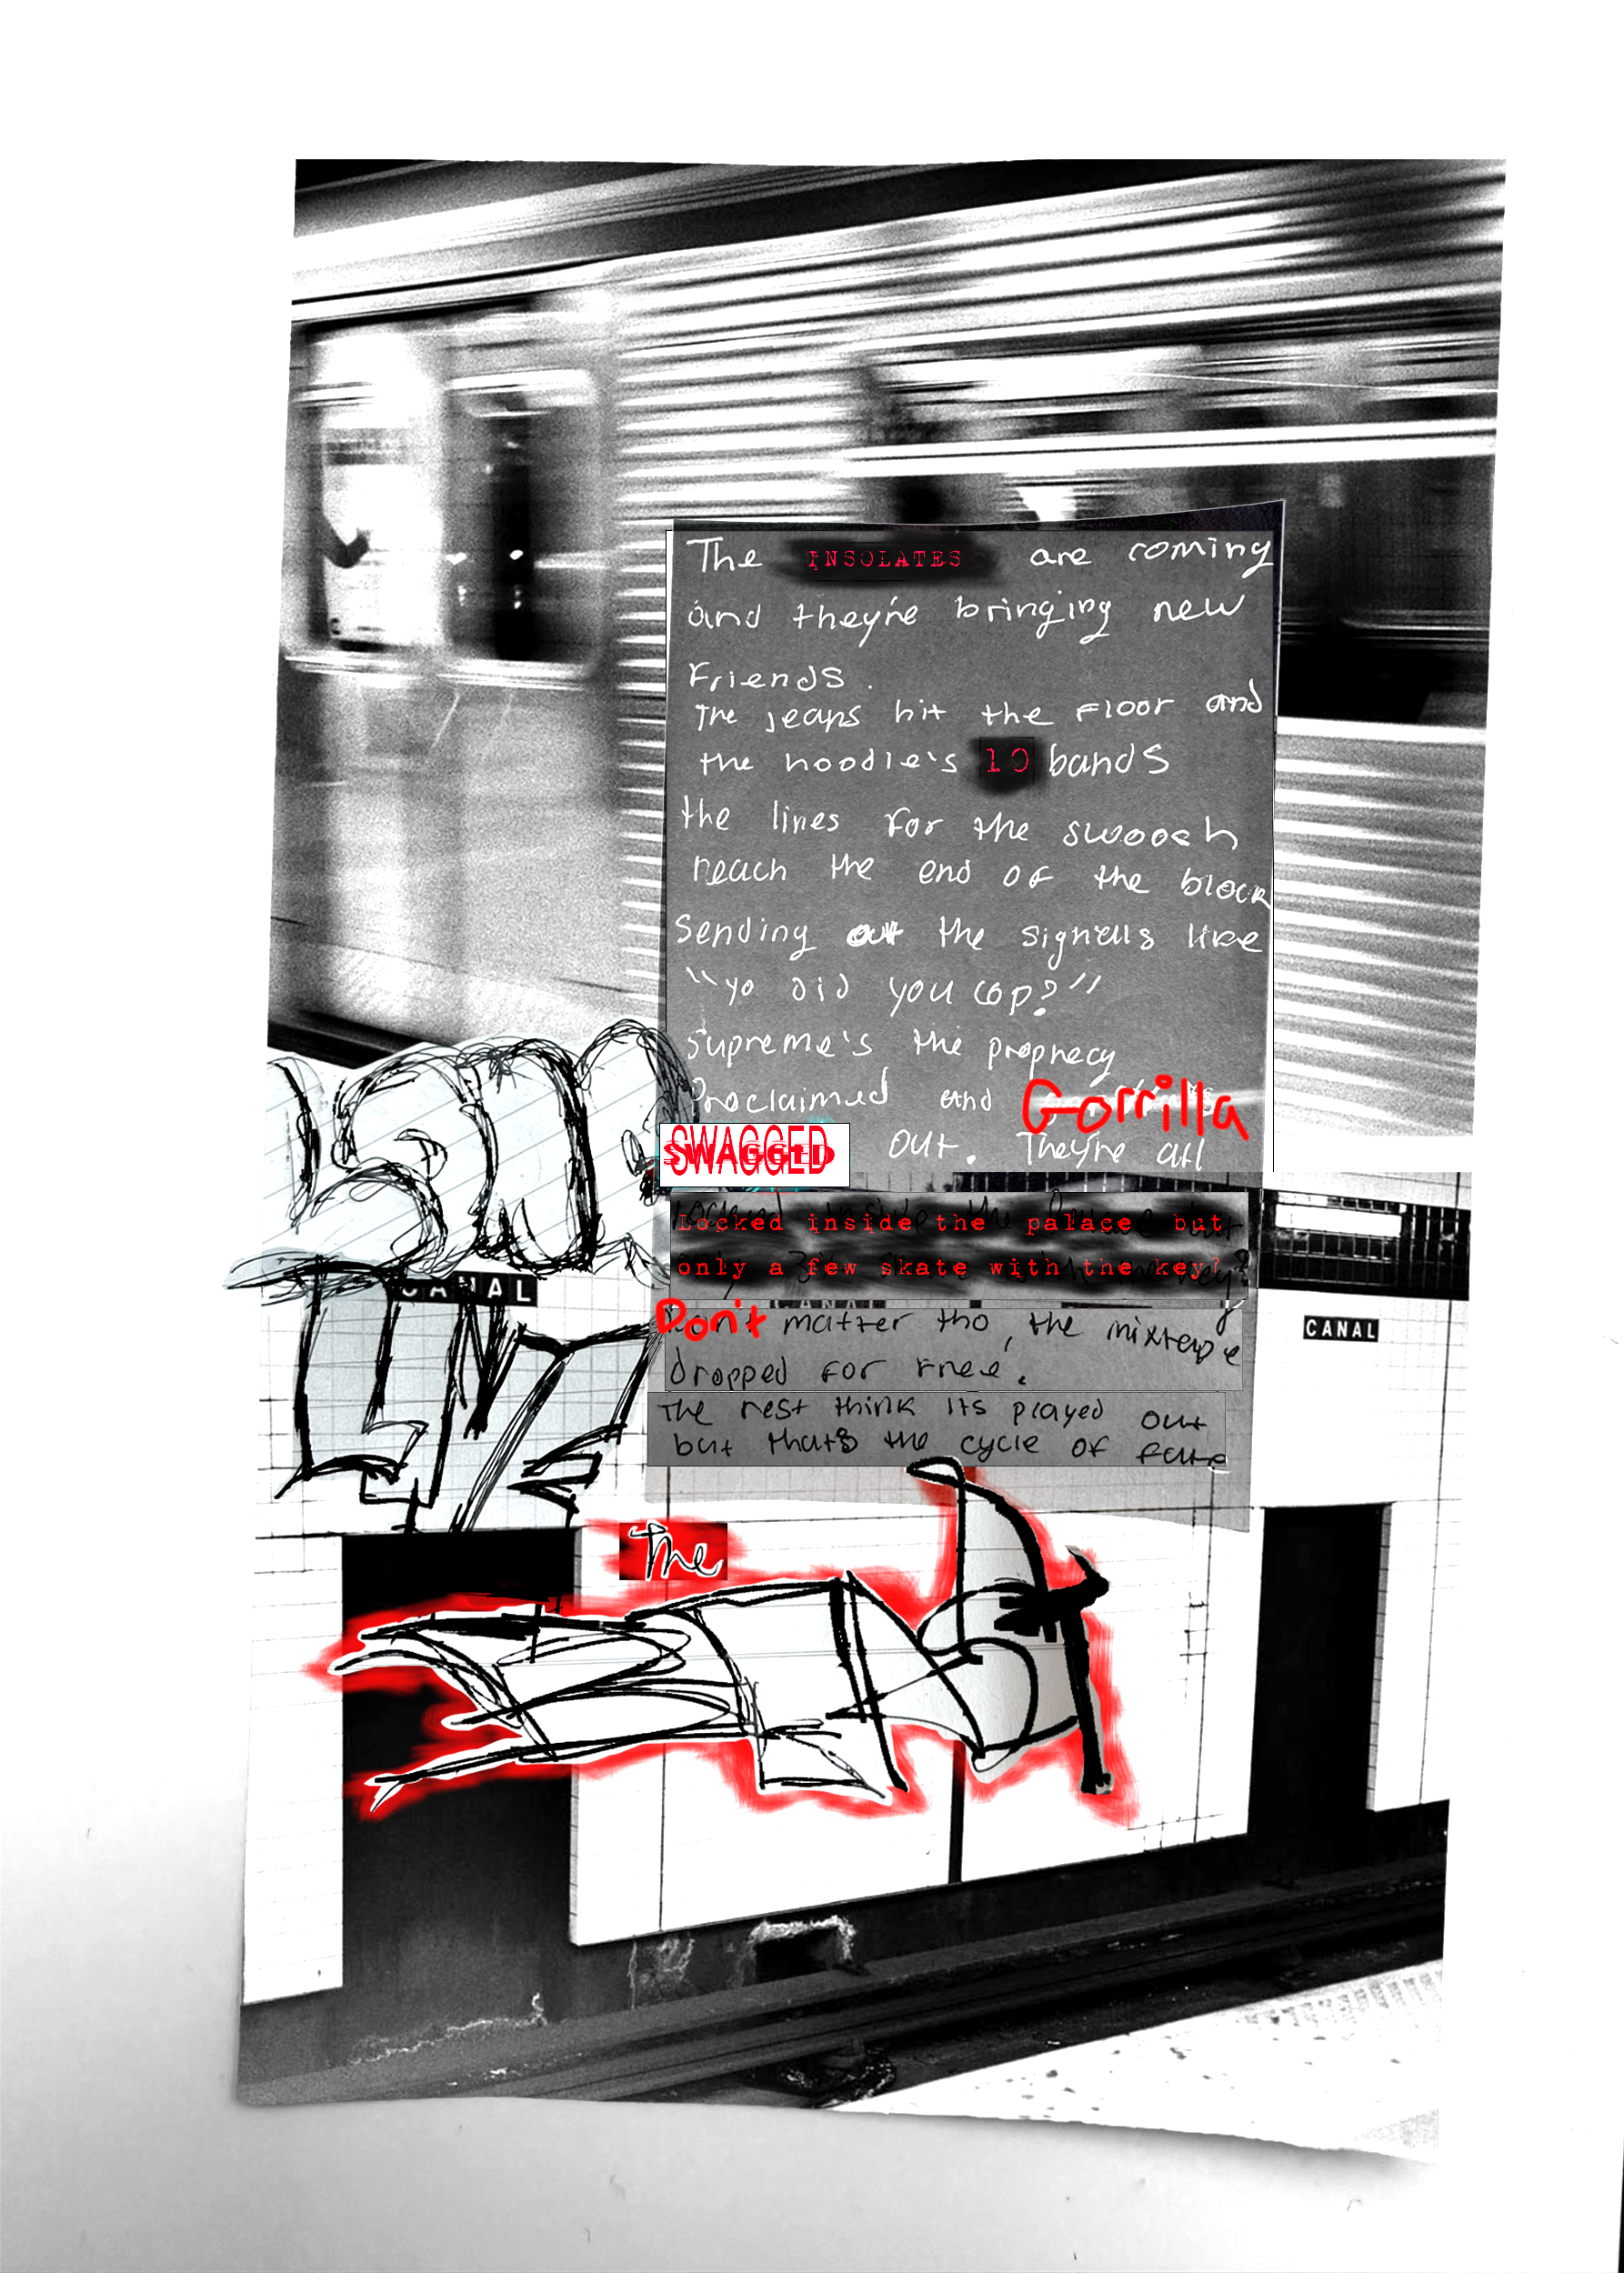 The INSOLATES are coming
and they're bringing new
Friends.
The jeans hit the floor and
the hoodie's 10 bands
the lines for the swoosh
reach the end of the block
Sending out the signells like
"yo did you cop?"
Supreme's the prophecy
Proclaimed and Gorrilla
SWAGGED out. They're all
Locked inside the palace but
only a few skate with the key?
Don't matter tho, the mixtape
dropped for free.
The rest think its played out
but thats the cycle of fate
CANAL
CANAL
The